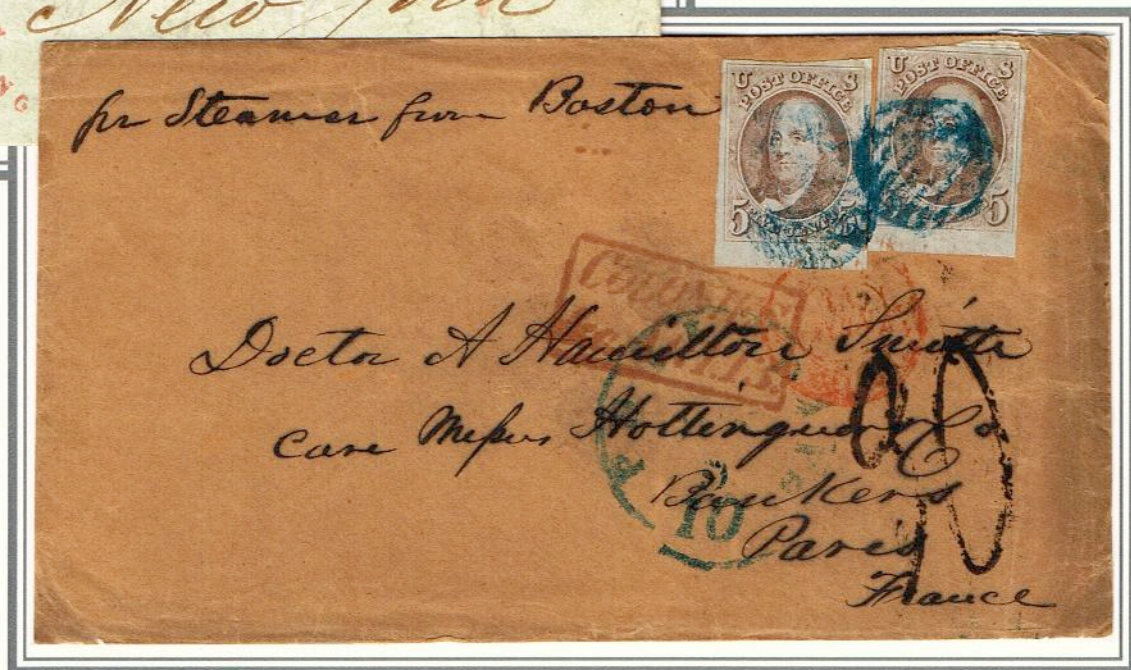 New York
pr Steamer from Boston
U S
POST OFFICE
5 5
U S
POST OFFICE
5
COLONIES
Doctor A Hamilton Smith
Care Messrs Hottinguer & Co
10
Bankers
Paris
France